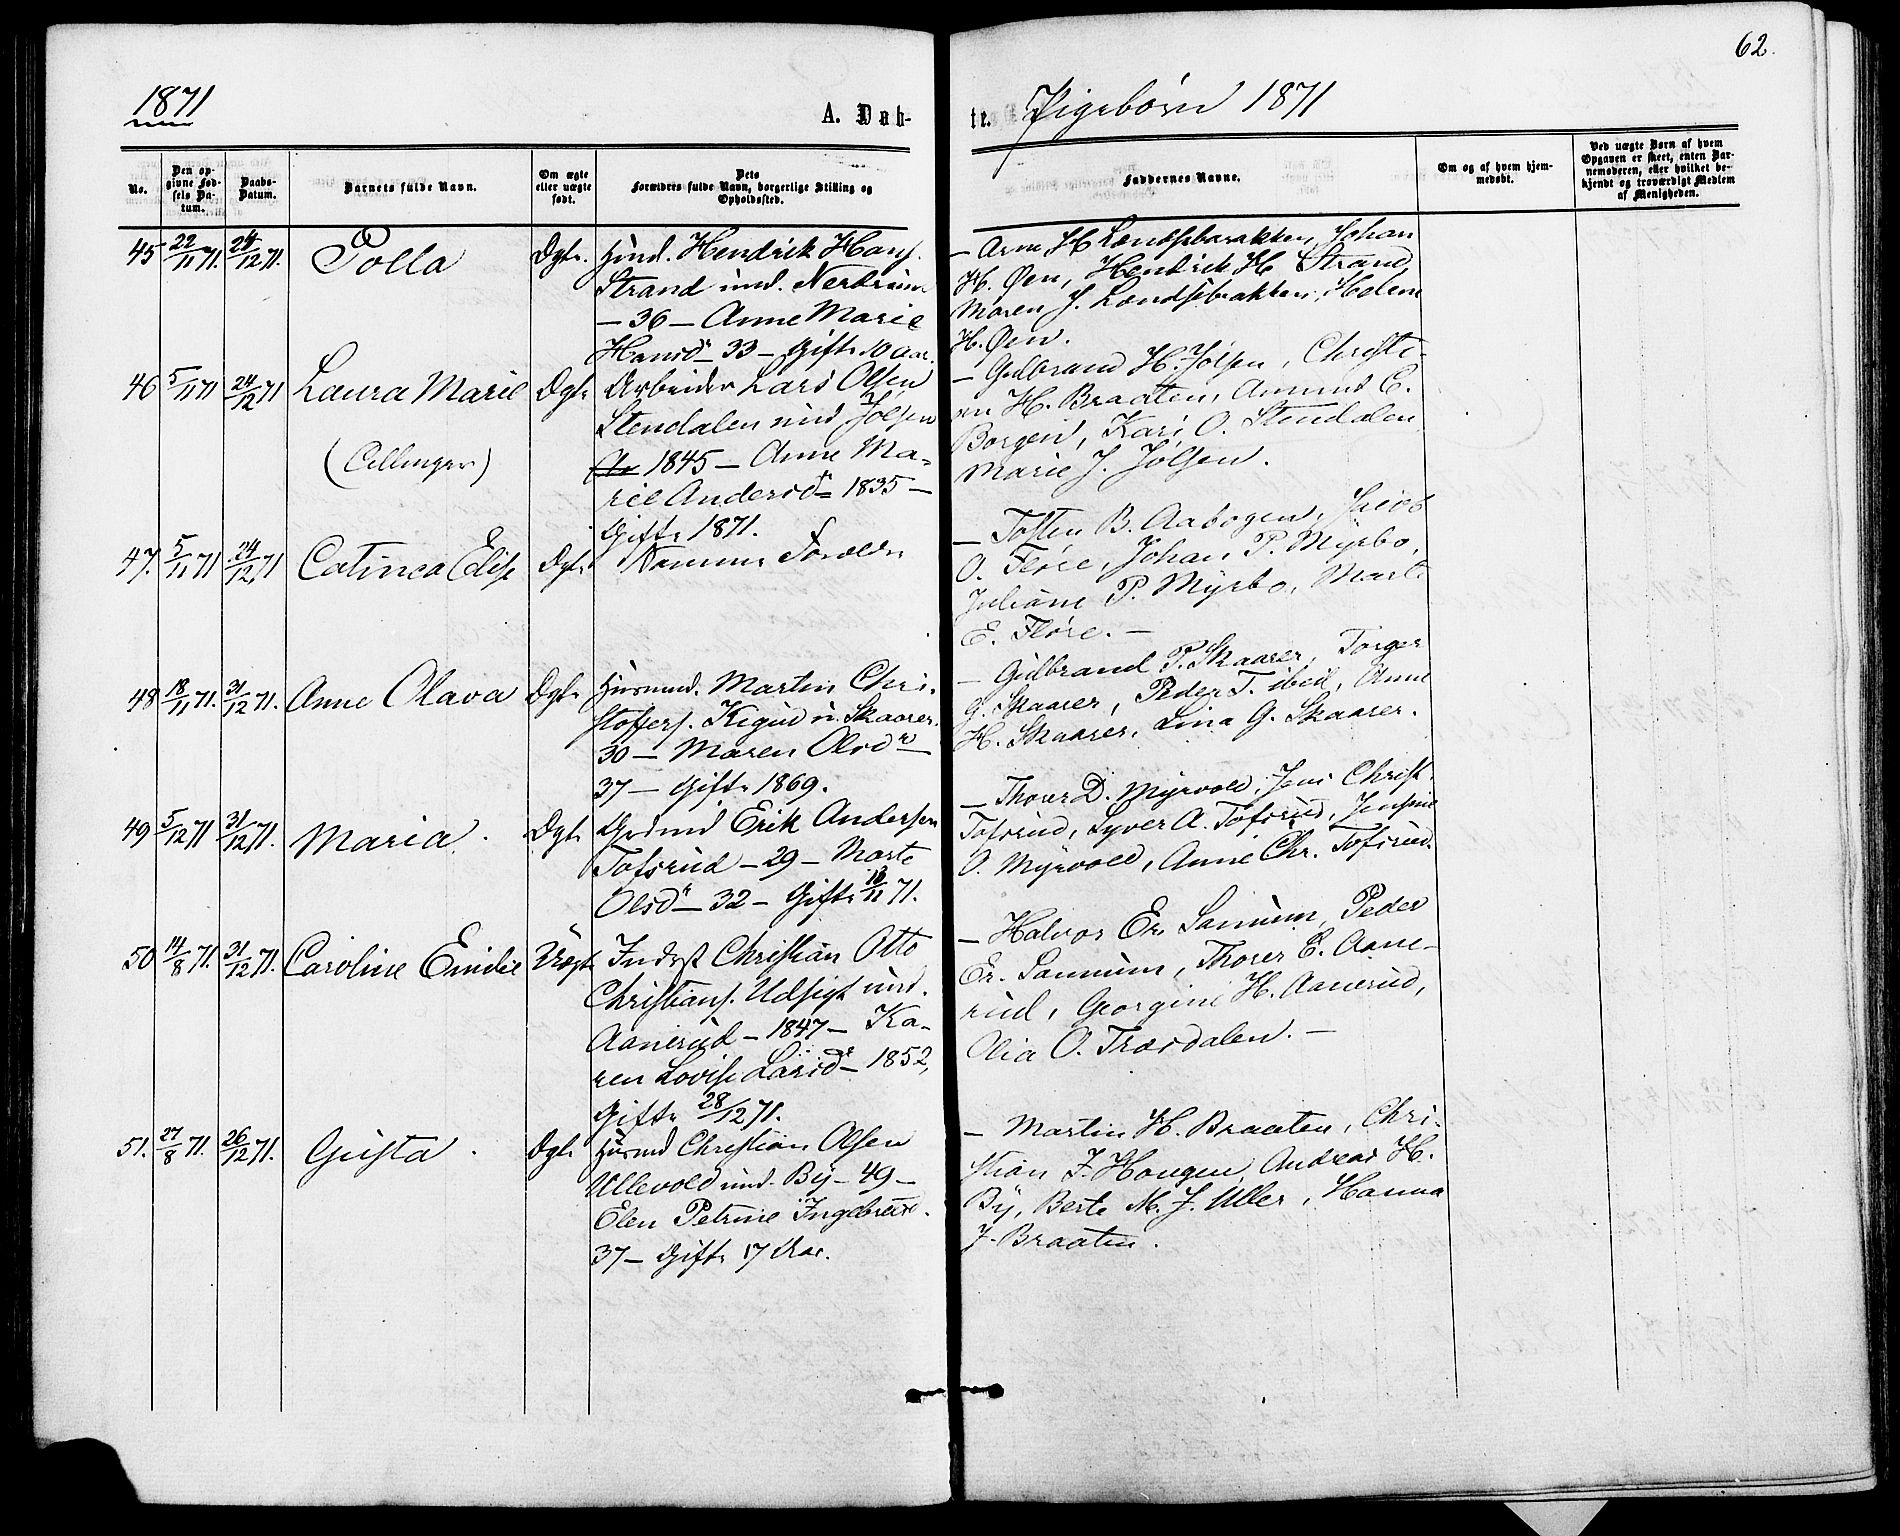 62.
1871
A. Daab-
te.
Pigebørn 1871
No.
Den op-
givne Fød-
sels Da-
tum.
Daabs-
Datum.
Barnets fulde Navn.
Om ægte
eller uægte
født.
Dets
Forældres fulde Navn, borgerlige Stilling og
Opholdssted.
Faddernes Navne.
Om og af hvem hjem-
medøbt.
Ved uægte Børn af hvem
Opgaven er skeet, enten Bar-
nemoderen, eller hvilket be-
kjendt og troværdigt Medlem
af Menigheden.
45 22/11 71. 24/12 71. Polla Ægte.
Husd. Hendrik Hans.
Strand und. Nerdrum
– 36 – Anne Marie
Hansdr – 33 – Gifte 10 Aar.
– Arne H Lændsbarakken, Johan
H. Øen, Hendrik H Strand
Maren J. Lændsebrakken, Helene
H. Øen.
46 5/11 71 24/12 71 Laura Marie Ægte
(Tvillinger)
Arbeider Lars Olsen
Stendalen und Jølsen
1845 – Anne Ma-
rie Andersdr – 1835 –
Gifte 1871.
– Gulbrand H. Jølsen, Christi-
an H. Braaten, Amund C.
Borgen, Kari O. Stendalen
Marie J. Jølsen.
47. 5/11 71 24/12 71 Catinca Elise Ægte
Samme Forældre
– Tosten B. Aabogen, Jacob
O. Fløre, Johan P. Myrbo,
Juliane P. Myrbo, Marte
E. Fløre. –
48 18/11 71. 31/12 71. Anne Olava Ægte
Husmd. Martin Chri-
stoffers. Kegud u. Skaarer
30 – Maren Olsdr –
37 – Gifte 1869.
– Gulbrand P. Skaarer, Torger
G. Skaarer, Peder T. ibid, Anne
H. Skaarer, Lina G. Skaarer.
49 5/12 71 31/12 71. Maria. Ægte
Grdmd Erik Andersen
Tofsrud – 29 – Marte
Olsdr – 32 – Gifte 18/11 71.
– Thorer D. Myrvold, Jens Christ.
Tofsrud, Syver A. Tofsrud, Jensine
O. Myrvold, Anne Chr. Tofsrud.
50 14/8 71. 31/12 71. Caroline Emilie Uægte
Inderst Christian Otto
Christians. Udsigt und.
Aanerud – 1847 – Ka-
ren Lovise Larsdr – 1852,
Gifte 28/12 71.
– Halvor Er. Sannum, Peder
Er. Sannum, Thorer E. Aane-
rud, Georgine H. Aanerud,
Olia O. Træsdalen. –
51. 27/8 71. 26/12 71. Gusta. Ægte
Husmd Christian Olsen
Ullevold und. By – 49 –
Elen Petrine Ingebretsd.
37 – Gifte 17 Aar.
– Martin H. Braaten, Chri-
stian F. Haugen, Andreas H.
By, Berte M. J. Uller, Hanna
J. Braaten.